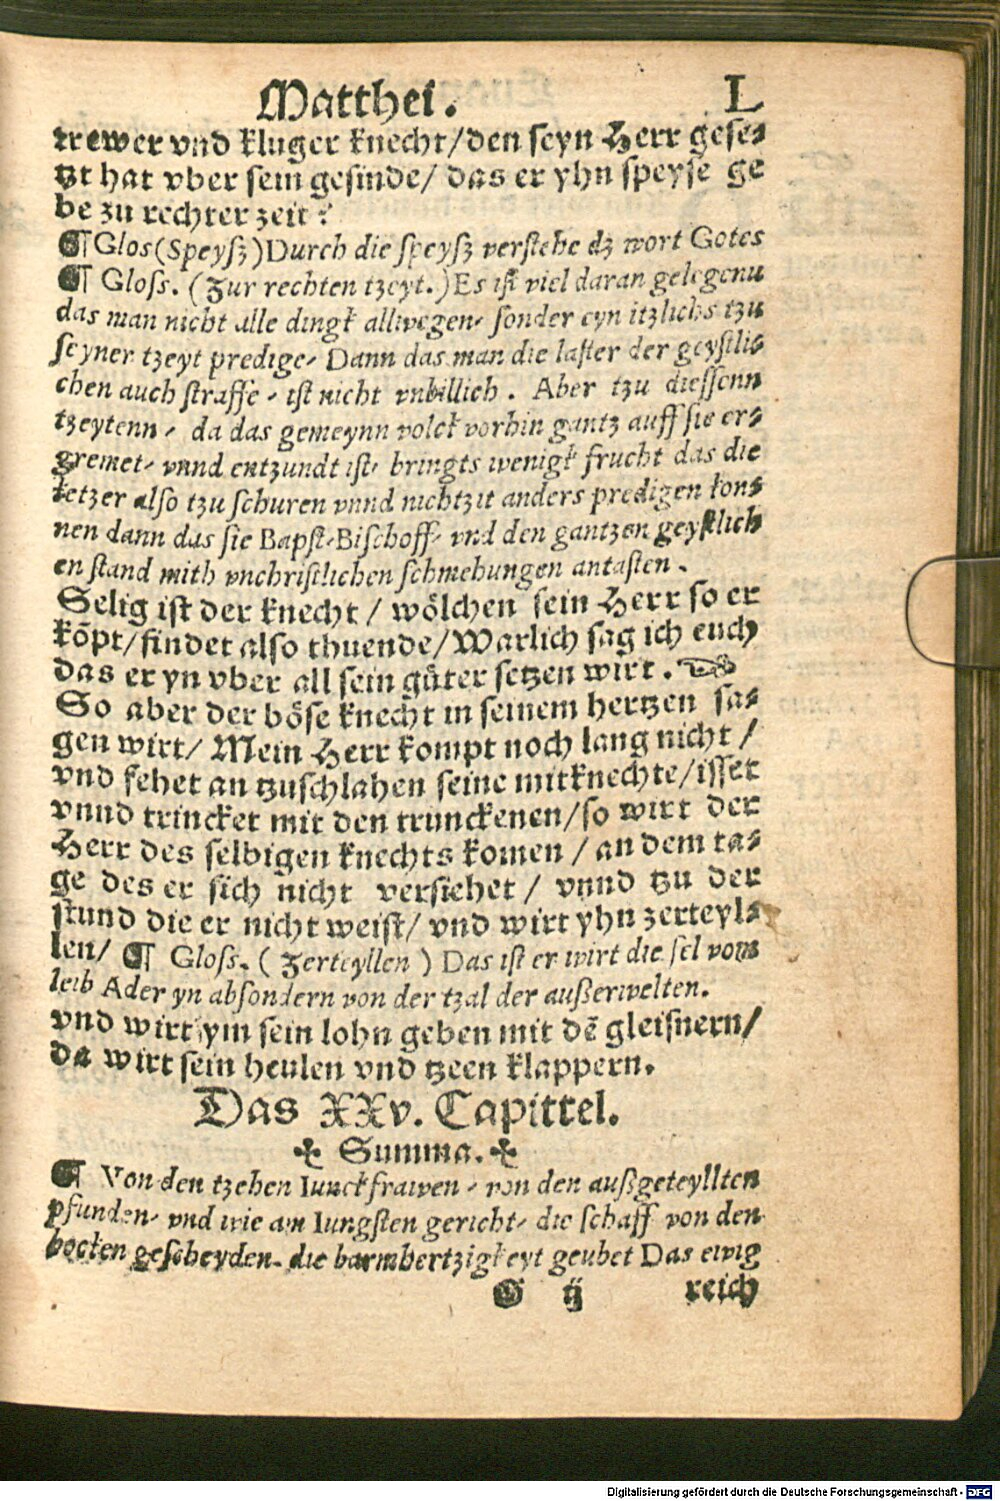 Matthei. L
trewer vnd kluger knecht/den seyn Herr gese⸗
tzt hat vber sein gesinde/ das er yhn speyse ge
be zu rechter zeit?
¶ Glos(Speysz)Durch die speysz verstehe dz wort Gotes
¶ Gloss. (Zur rechten tzeyt.)Es ist viel daran gelegenn
das man nicht alle dingk allwegen, sonder eyn itzlichs tzu
seyner tzeyt predige, Dann das man die laster der geystli⸗
chen auch straffe, ist nicht vnbillich. Aber tzu diessenn
tzeytenn, da das gemeynn volck vorhin gantz auff sie er⸗
gremet, vnnd entzundt ist, bringts wenigk frucht das die
ketzer also tzu schuren vnnd nichtzit anders predigen kon⸗
nen dann das sie Bapst,Bischoff, vnd den gantzen geystlich
en stand mith vnchristlichen schmehungen antasten.
Selig ist der knecht/ wölchen sein Herr so er
kõpt/findet also thuende/Warlich sag ich euch
das er yn vber all sein güter setzen wirt.
So aber der böse knecht in seinem hertzen sa⸗
gen wirt/ Mein Herr kompt noch lang nicht/
vnd fehet an tzuschlahen seine mitknechte/isset
vnnd trincket mit den trunckenen/so wirt der
Herr des selbigen knechts komen/ an dem ta⸗
ge des er sich nicht versiehet/ vnnd tzu der
stund die er nicht weist/ vnd wirt yhn zerteyl⸗
len/ ¶ Gloss. (Zerteyllen) Das ist er wirt die sel vom
leib Ader yn absondern von der tzal der außerwelten.
vnd wirt ym sein lohn geben mit dẽ gleisnern/
da wirt sein heulen vnd tzeen klappern.
Das XXv. Capittel.
✤ Summa. ✤
¶ Von den tzehen Iunckfrawen, von den außgeteyllten
pfunden, vnd wie am Iungsten gericht, die schaff von den
bocken gescheyden, die barmhertzigkeyt geubet Das ewig
G ij reich
Digitalisierung gefördert durch die Deutsche Forschungsgemeinschaft - DFG